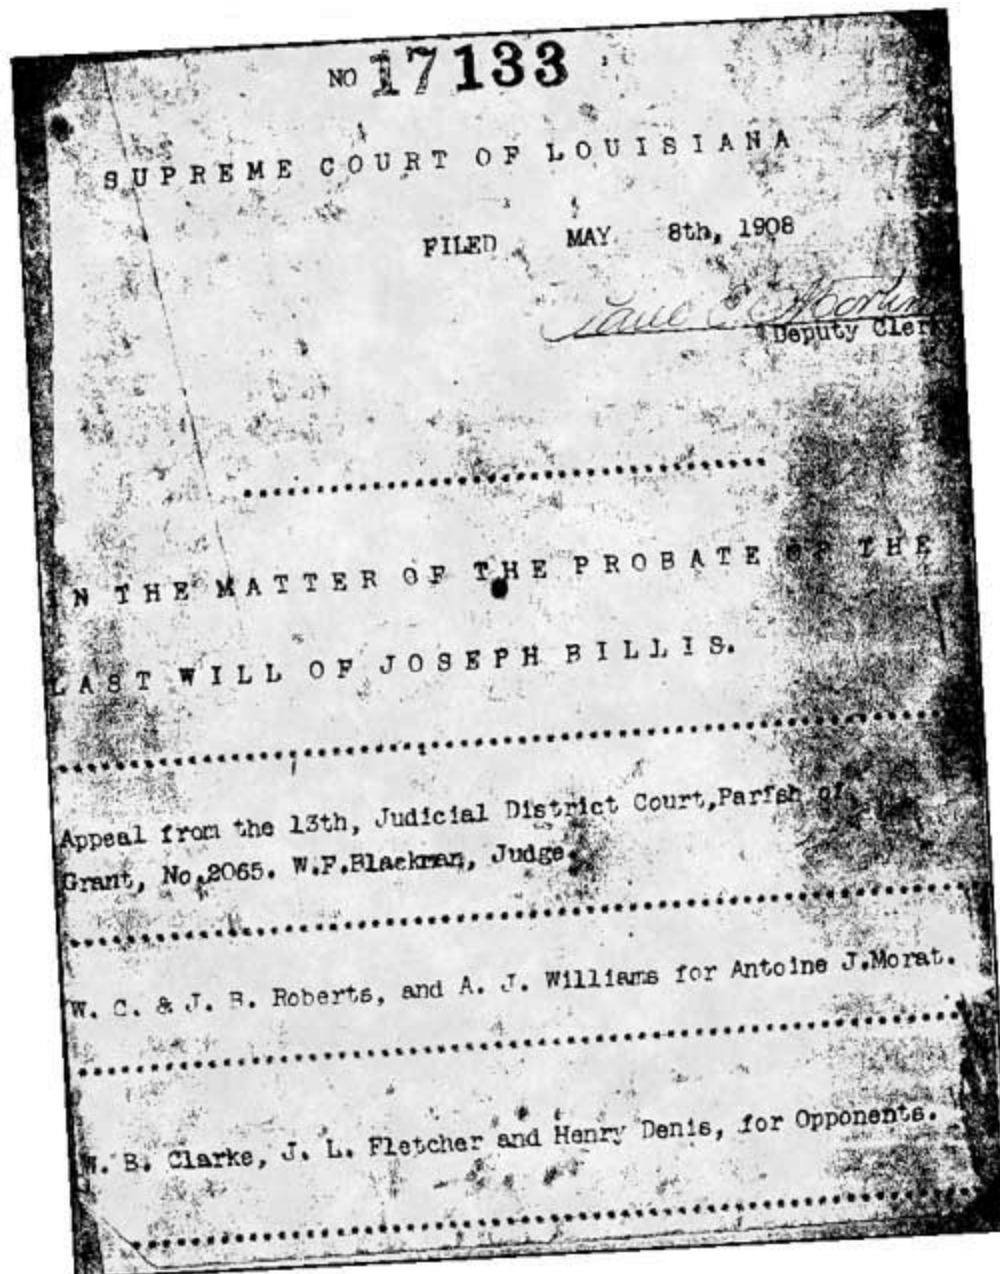 NO 17133
SUPREME COURT OF LOUISIANA
FILED MAY 8th, 1908
Paul E.
Deputy Clerk
N THE MATTER OF THE PROBATE OF THE
LAST WILL OF JOSEPH BILLIS.
Appeal from the 13th, Judicial District Court,Parish of
Grant, No.2065. W.F.Blackman, Judge.
W. C. & J. B. Roberts, and A. J. Williams for Antoine J.Morat.
W. B. Clarke, J. L. Fletcher and Henry Denis, for Opponents.